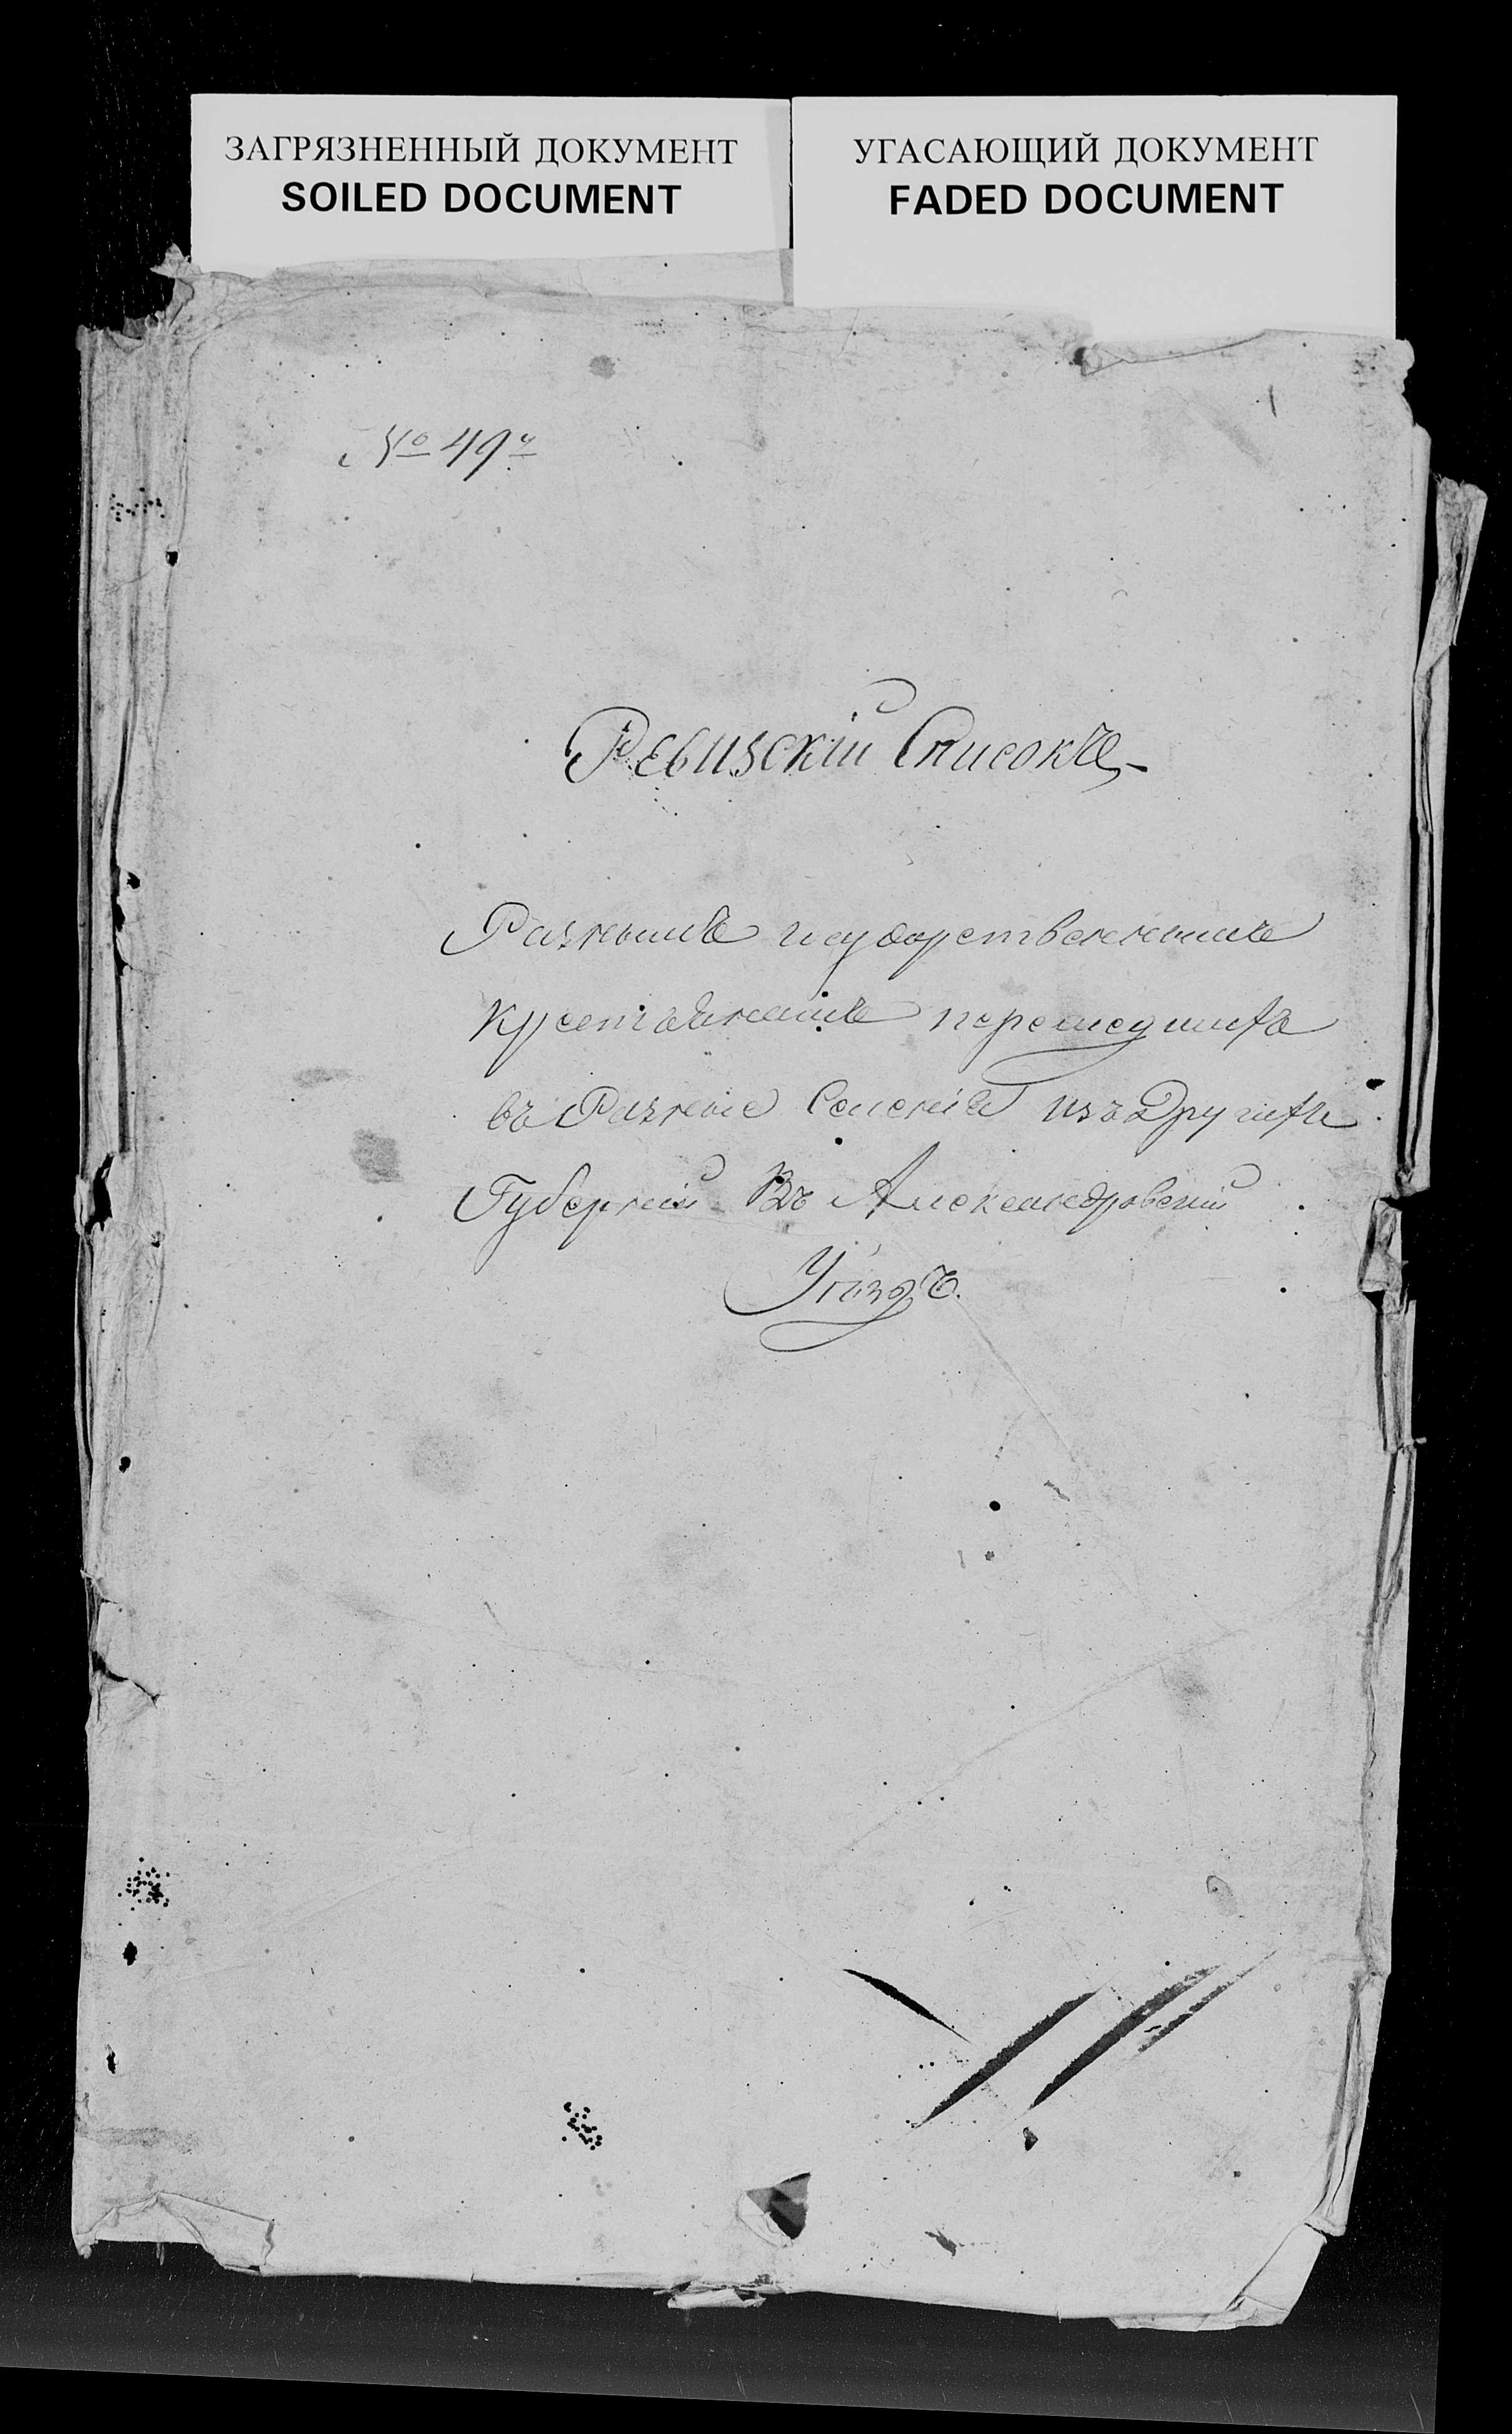 ЗАГРЯЗНЕННЫЙ ДОКУМЕНТ
SOILED DOCUMENT
УГАСАЮЩИЙ ДОКУМЕНТ
FADED DOCUMENT
1
№ 49й
Ревизскій Списокъ
Разнымъ государственнымъ
крестьянамъ перешедшихъ
въ Разные Селенія изъ Другихъ
Губерній Въ Александровскій
Уѣздъ.